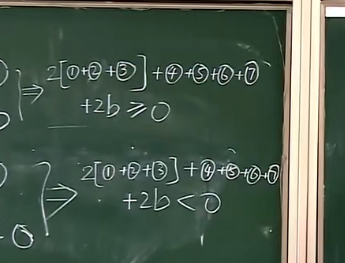 ⇒ 2[①+②+③]+④+⑤+⑥+⑦
+2b ≥ 0
⇒ 2[①+②+③]+④+⑤+⑥+⑦
+2b < 0
0